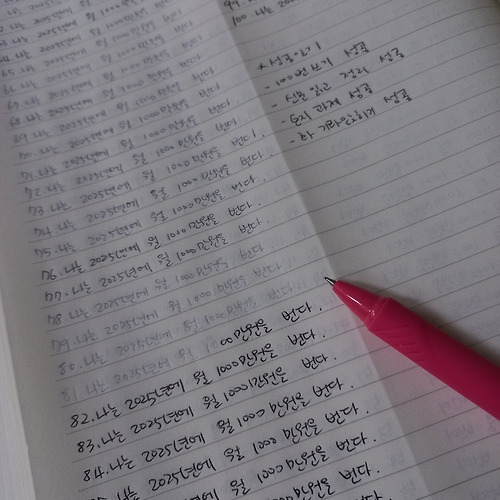 나는 2025년에 월 1000만원을 번다
나는 2025년에 월 1000만원을 번다
65. 나는 2025년에 월 1000만원을 번다
나는 2025년에 월 1000만원을 번다
67. 나는 2025년에 월 1000만원을 번다
68. 나는 2025년에 월 1000만원을 번다
69. 나는 2025년에 월 1000만원을 번다
70. 나는 2025년에 월 1000만원을 번다
71. 나는 2025년에 월 1000만원을 번다.
72. 나는 2025년에 월 1000만원을 번다.
73. 나는 2025년에 월 1000만원을 번다.
74. 나는 2025년에 월 1000만원을 번다.
75. 나는 2025년에 월 1000만원을 번다.
76. 나는 2025년에 월 1000만원을 번다.
77. 나는 2025년에 월 1000만원을 번다.
78. 나는 2025년에 월 1000만원을 번다.
79. 나는 2025년에 월 1000만원을 번다.
80. 나는 2025년에 월 1000만원을 번다.
81. 나는 2025년에 월 1000만원을 번다.
82. 나는 2025년에 월 1000만원을 번다.
83. 나는 2025년에 월 1000만원을 번다.
84. 나는 2025년에 월 1000만원을 번다.
나는 2025년에 월 1000만원을 번다.
번다.
99.
100. 나는 202
*성공일기
- 100번 쓰기 성공
- 신문 읽고 정리 성공
- 독서 과제 성공
- 하 거라인하기 성공